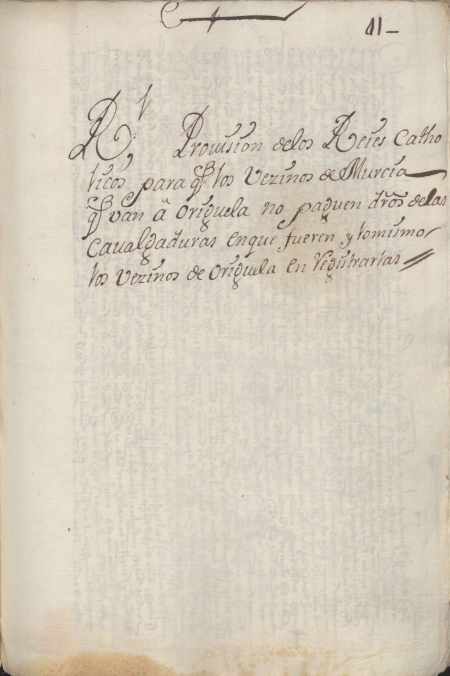 41
Rl Provision de los Reies Catho
licos para q los Vezinos de Murcia
q van â Origuela no paguen dros de las
Cavalgaduras en que fueren, y lo mismo
los Vezinos de Origuela en registrarlas